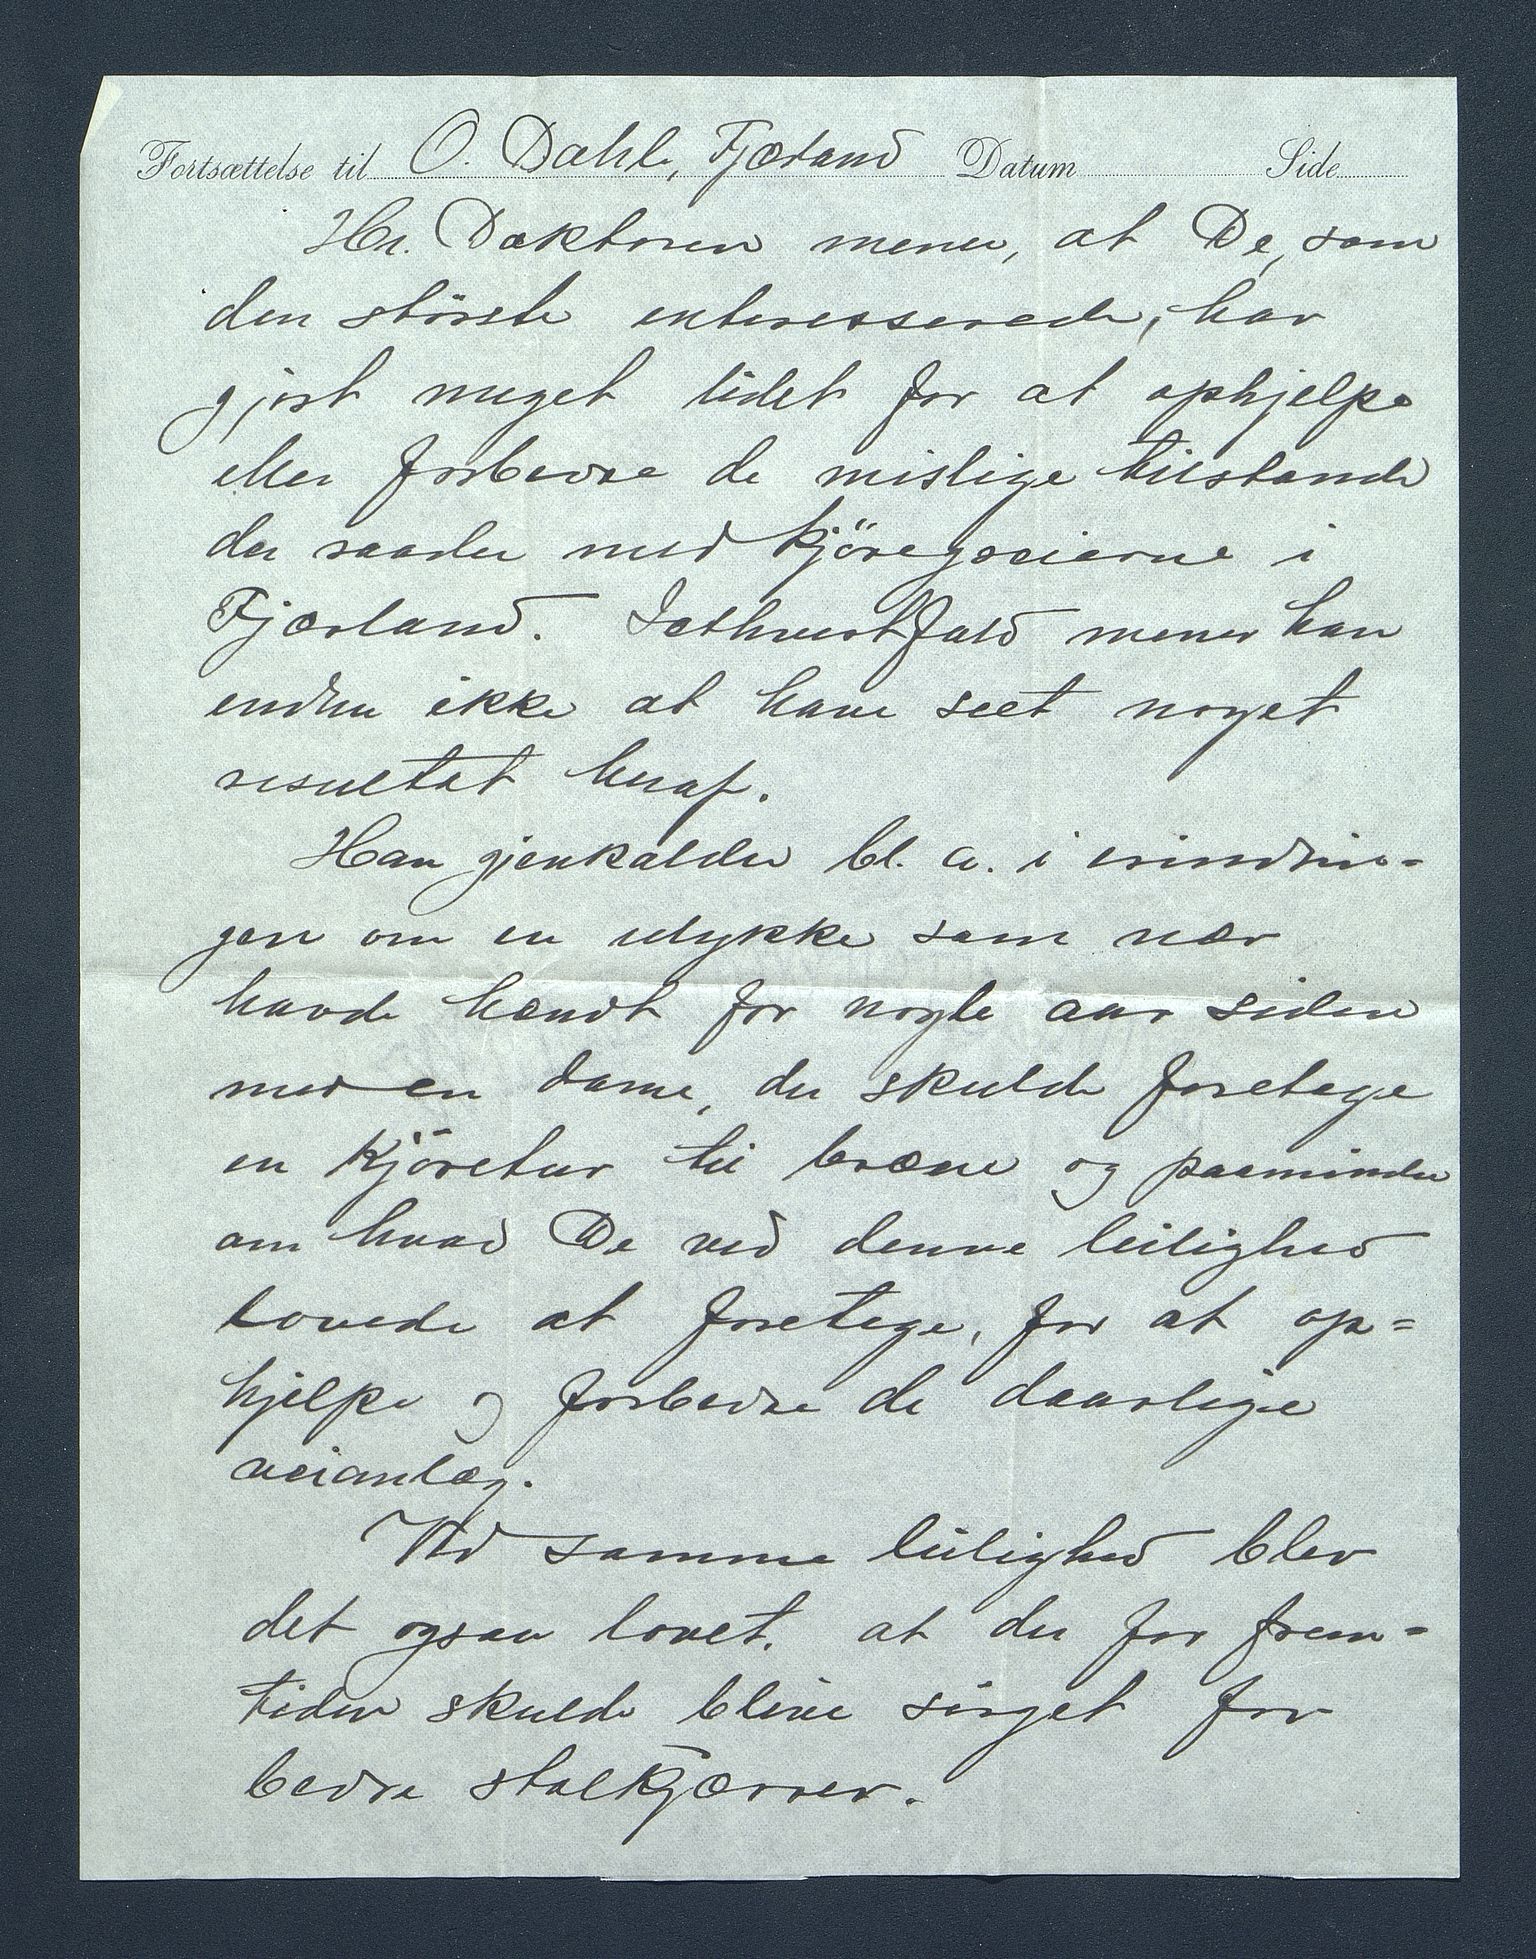 Fortsættelse til O. Dahle, Fjærland Datum Side
Hr. Doktoren mener, at De, som
den störste interesserede, har
gjort meget lidet for at ophjelpe
eller forbedre de mislige tilstande
der raader med kjöregreierne i
Fjærland. Iethvertfald mener han
endnu ikke at have seet noget
resultat heraf.
Han gjenkalder bl. a. i erindrin=
gen om en ulykke som nær
havde hændt for nogle aar siden
med en dame, der skulde foretage
en Kjöretur til bræene og paaminder
om hvad De ved denne leilighed
lovede at foretage, for at op=
hjelpe og forbedre de daarlige
veianlæg.
Ved samme leilighed blev
det ogsaa lovet, at der for frem=
tiden skulde blive sörget for
bedre stolkjærrer.